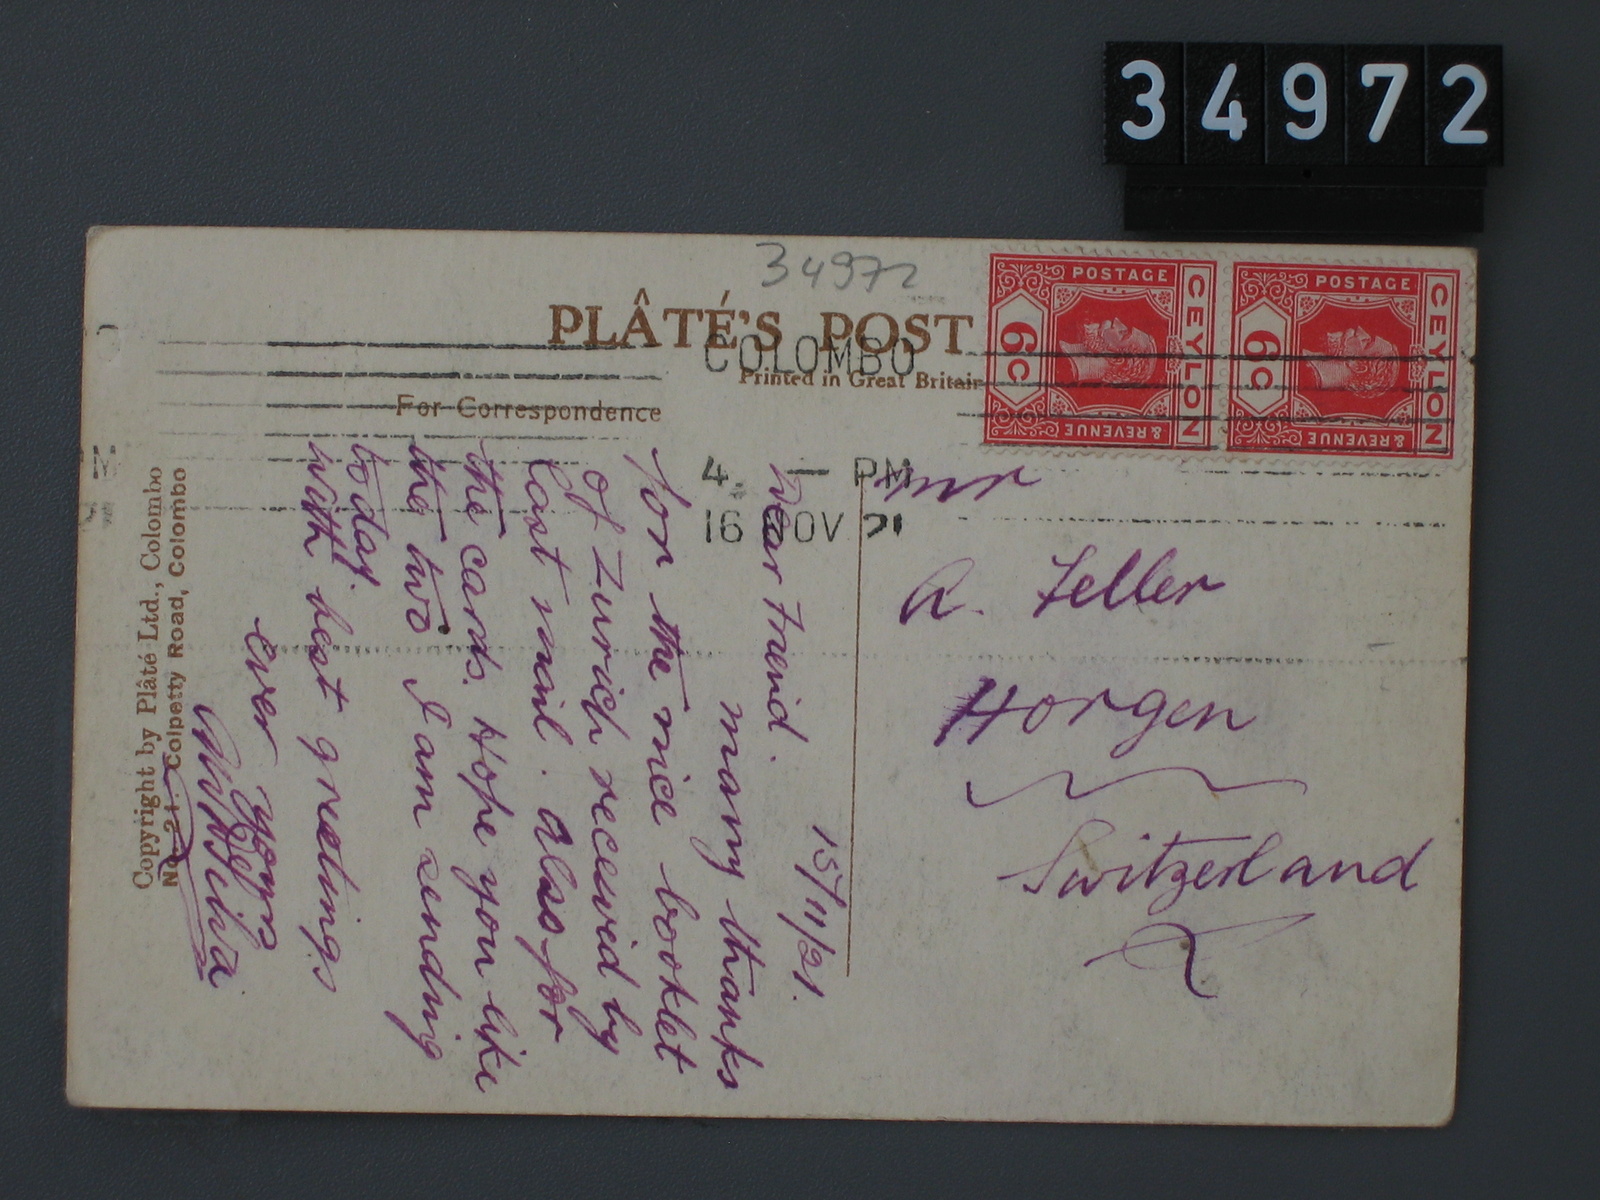 34972
34972
PLÂTÉ'S POST
Printed in Great Britain
For Correspondence
COLOMBO
4. — PM
16 NOV 21
POSTAGE
CEYLON
6C
& REVENUE
POSTAGE
CEYLON
6C
& REVENUE
15/11/21.
Dear Freind.
many thanks
for the nice booklet
of Zurich received by
last mail. Also for
the cards. Hope you like
the two I am sending
to day.
with best greetings
ever yours
Copyright by Plâté Ltd., Colombo
No. 21. Colpetty Road, Colombo
Mr
A. Feller
Horgen
Switzerland